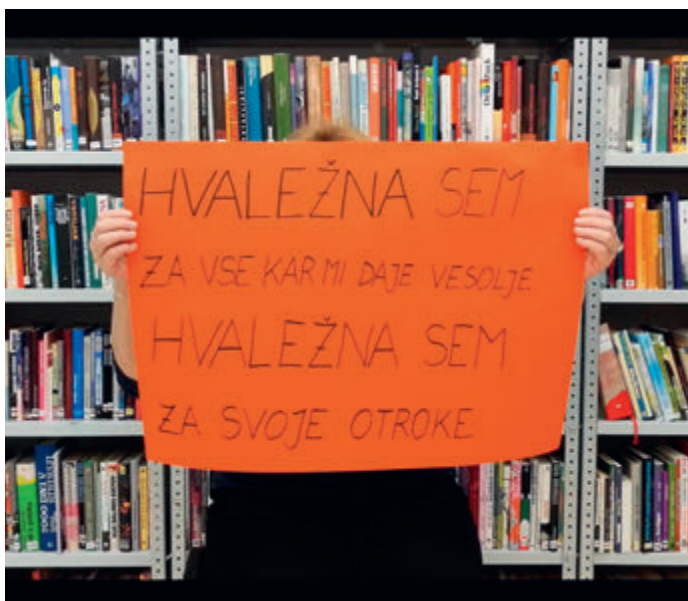 HVALEŽNA SEM
ZA VSE KAR MI DAJE VESOLJE
HVALEŽNA SEM
ZA SVOJE OTROKE